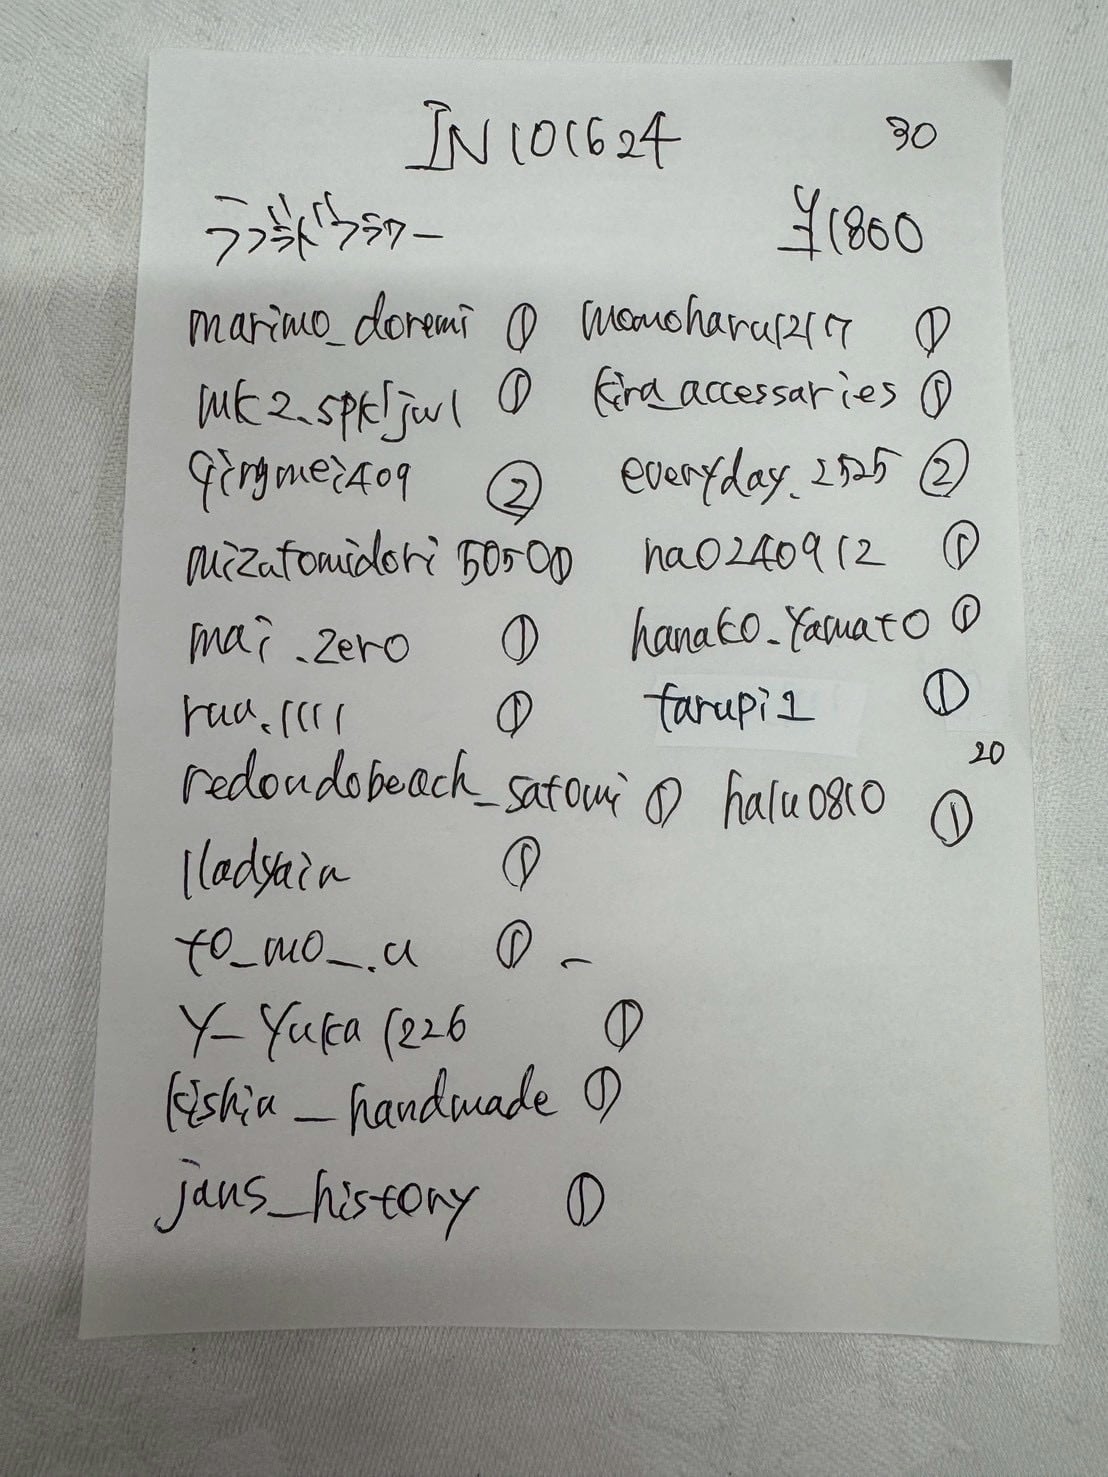 IN101624 30
¥1800
marimo_doremi ① momoharu1217 ①
mk2_spkljwl ① kira_accessaries ①
qingmei409 ② everyday_2525 ②
mizutomidori5050① na0240912 ①
mai_zero ① hanako_yamato ①
ruu.1111 ① tarupi1 ①
20
redondobeach_satomi ① halu0810 ①
lladyain ①
to_mo_.u ① -
y_yuka1226 ①
kishia_handmade ①
jans_history ①